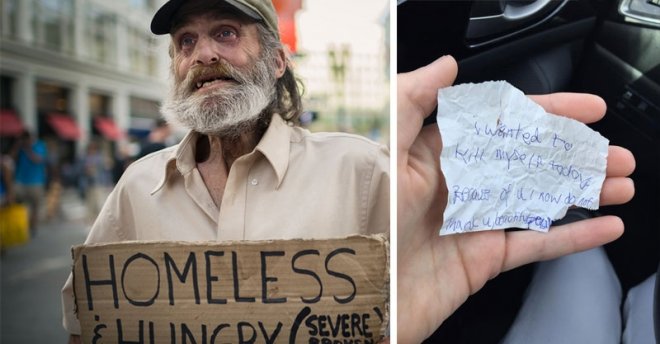 HOMELESS
& HUNGRY (SEVERE
BROKEN
i wanted to
kill myself today
Because of u i now do not
u beautiful